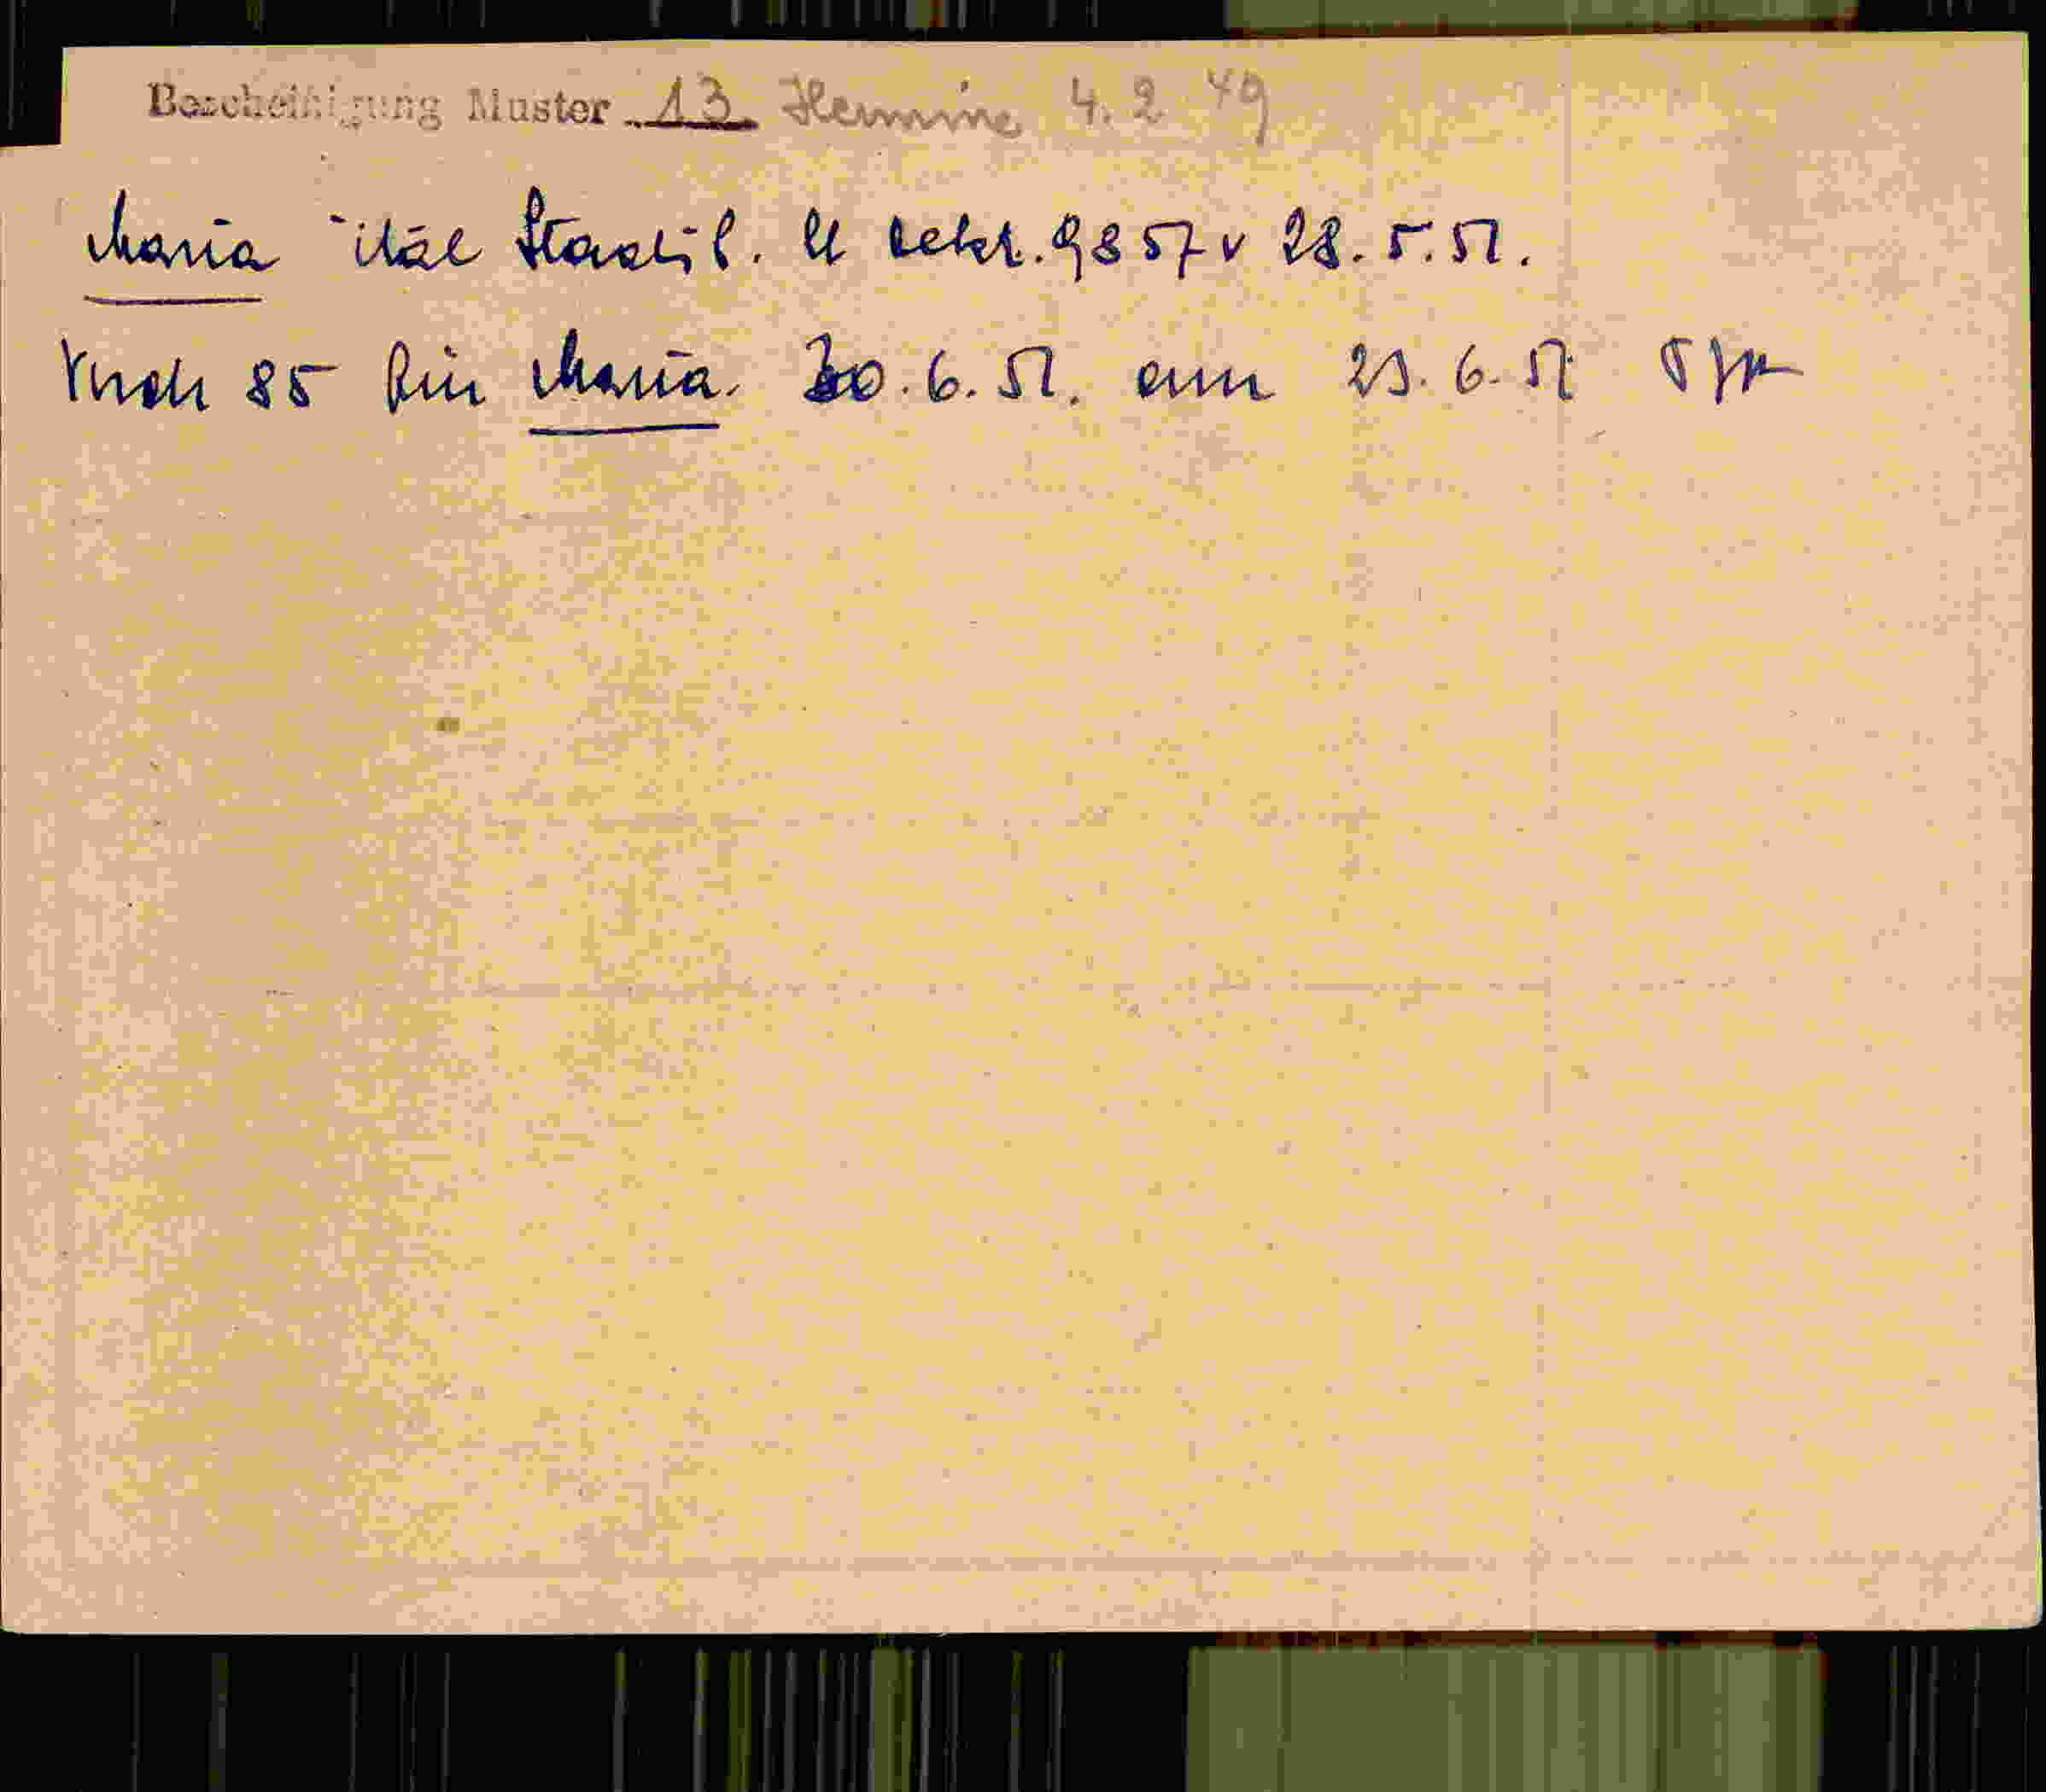 Bescheinigung Muster 13 Hermine 4. 2 49
Maria ital Staatsb. lt Dekr. 9857 v 28. 5. 51.
85 für Maria. 30. 6. 51. am 29. 6. 51